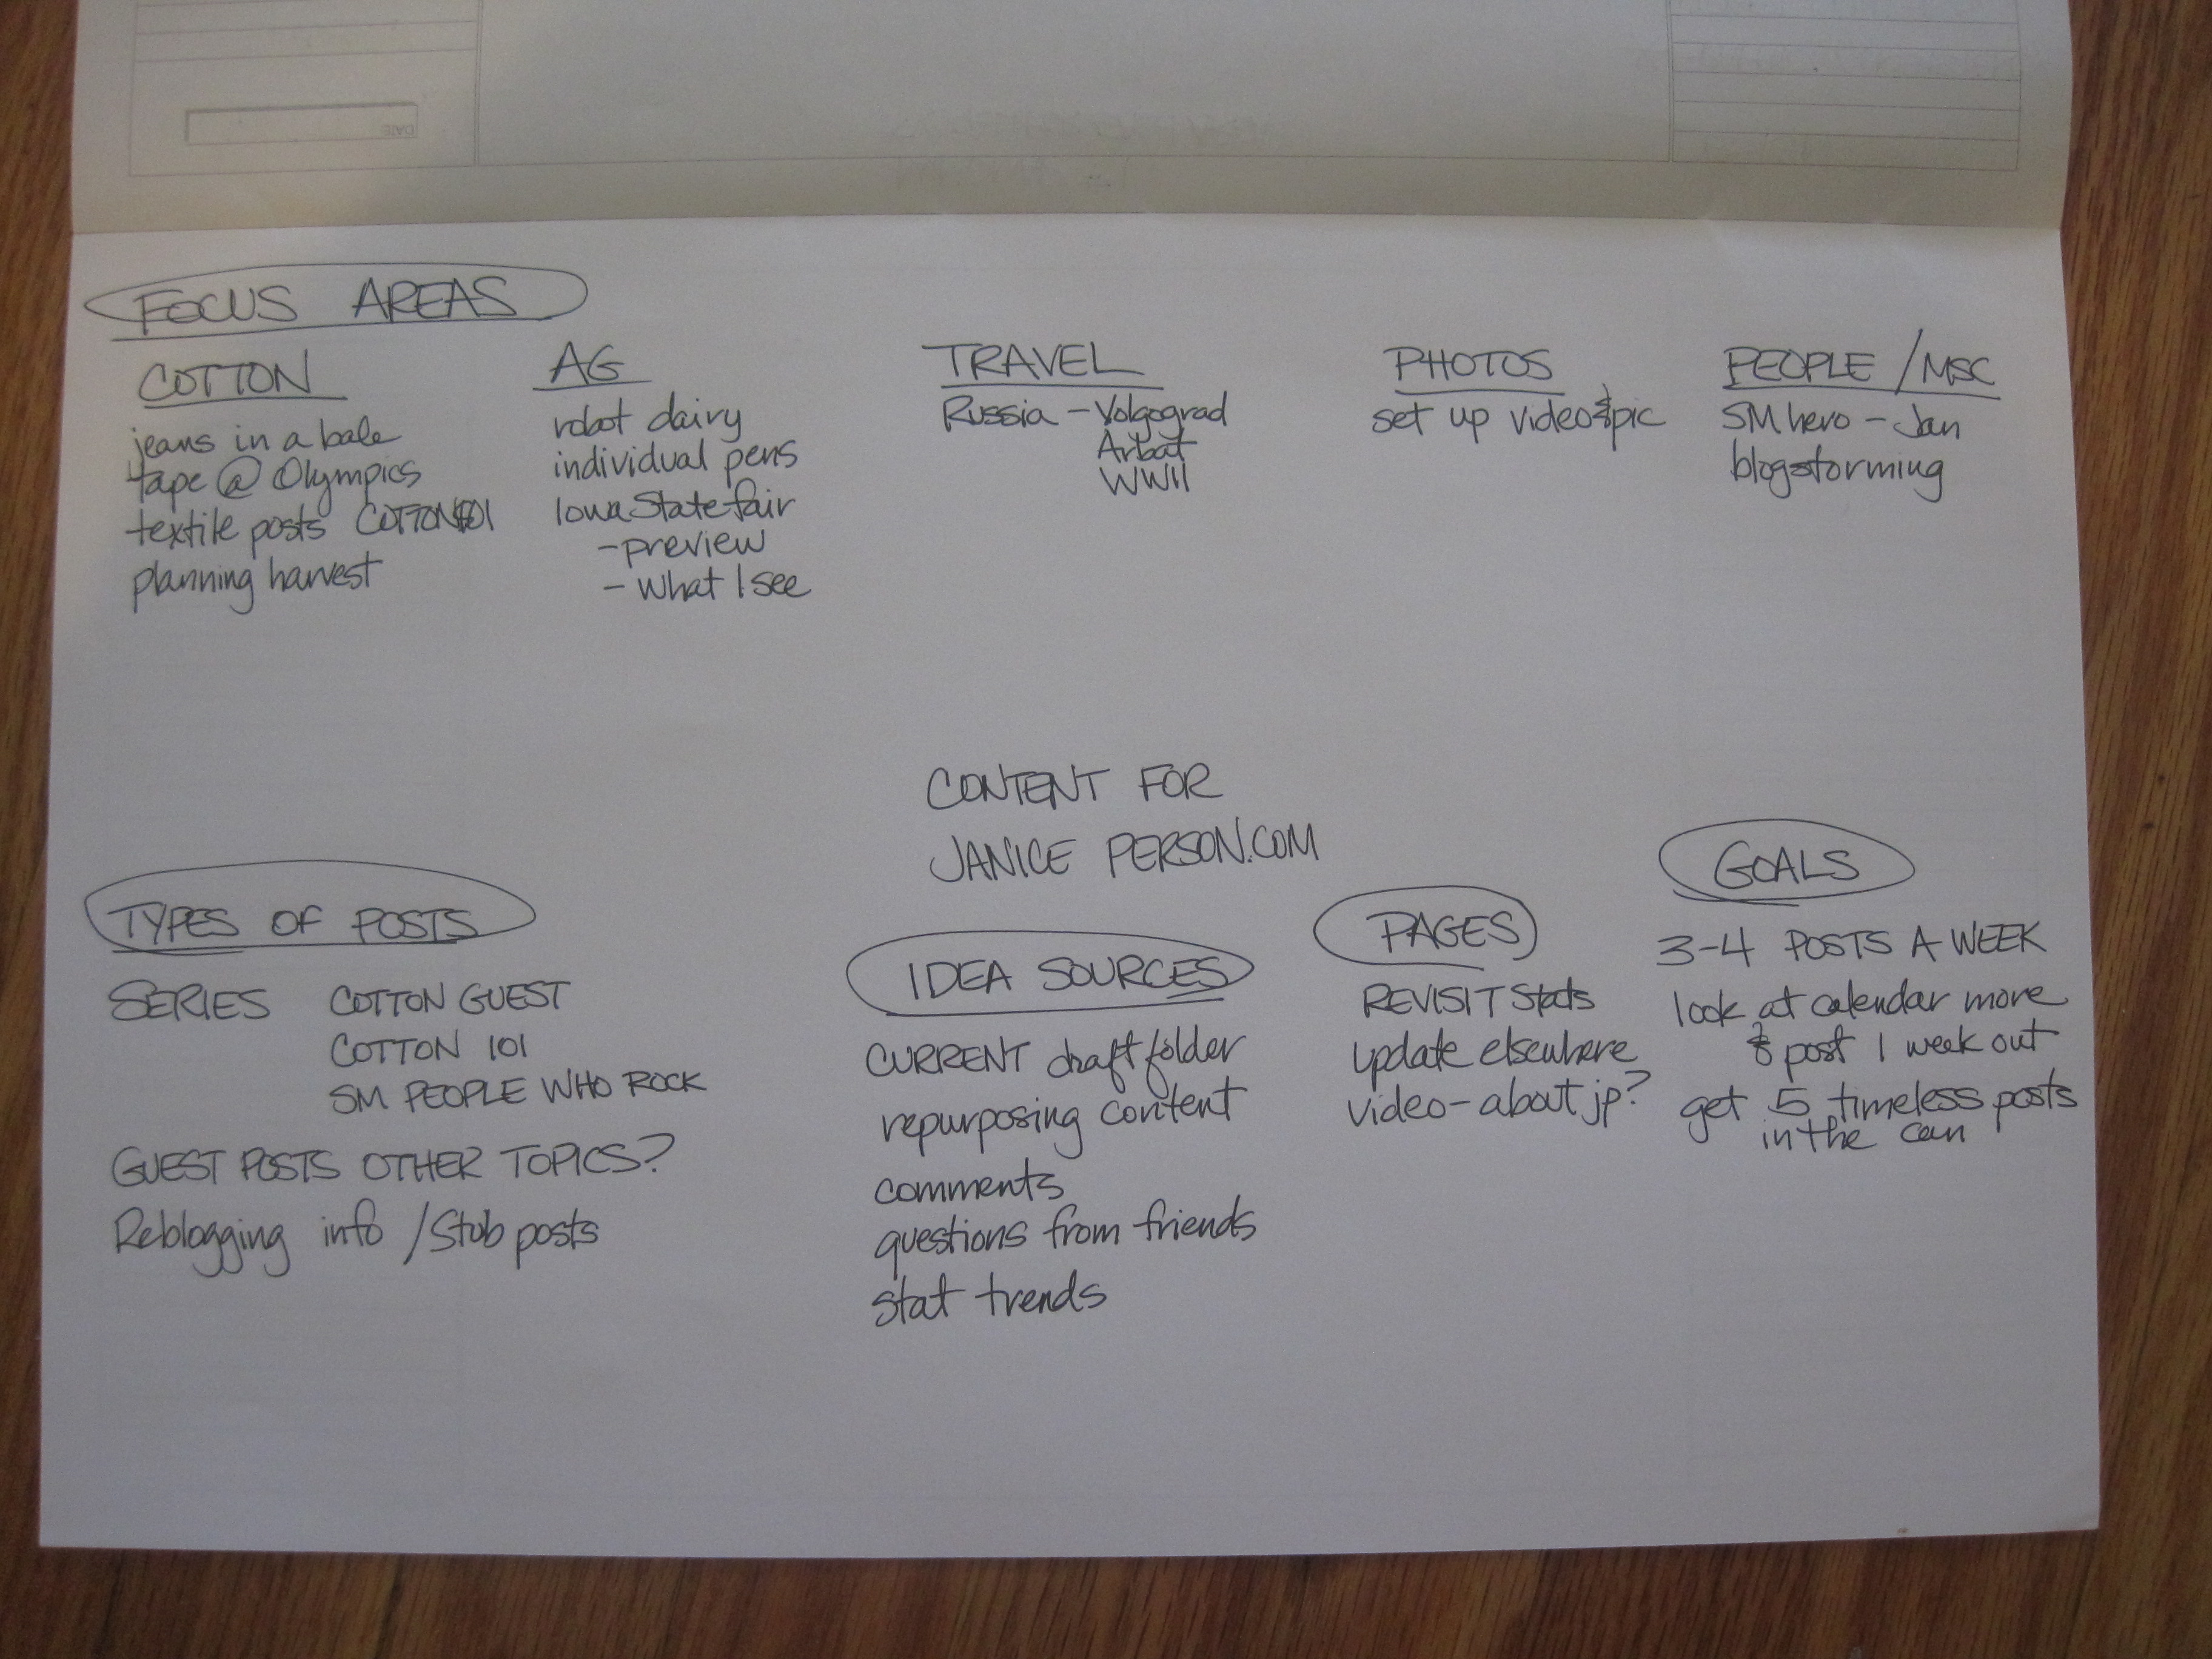 DATE
FOCUS AREAS
COTTON
jeans in a bale
tape @ Olympics
textile posts COTTON101
planning harvest
AG
robot dairy
individual pens
Iowa State fair
- preview
- What I see
TRAVEL
Russia - Volgograd
Arbat
WWII
PHOTOS
set up video & pic
PEOPLE / MSC
SM hero - Jan
blogstorming
CONTENT FOR
JANICE PERSON.COM
TYPES OF POSTS
SERIES COTTON GUEST
COTTON 101
SM PEOPLE WHO ROCK
GUEST POSTS OTHER TOPICS?
Reblogging info / Stub posts
IDEA SOURCES
CURRENT draft folder
repurposing content
comments
questions from friends
stat trends
PAGES
REVISIT Stats
update elsewhere
video - about jp?
GOALS
3-4 POSTS A WEEK
look at calendar more
& post 1 week out
get 5 timeless posts
in the can